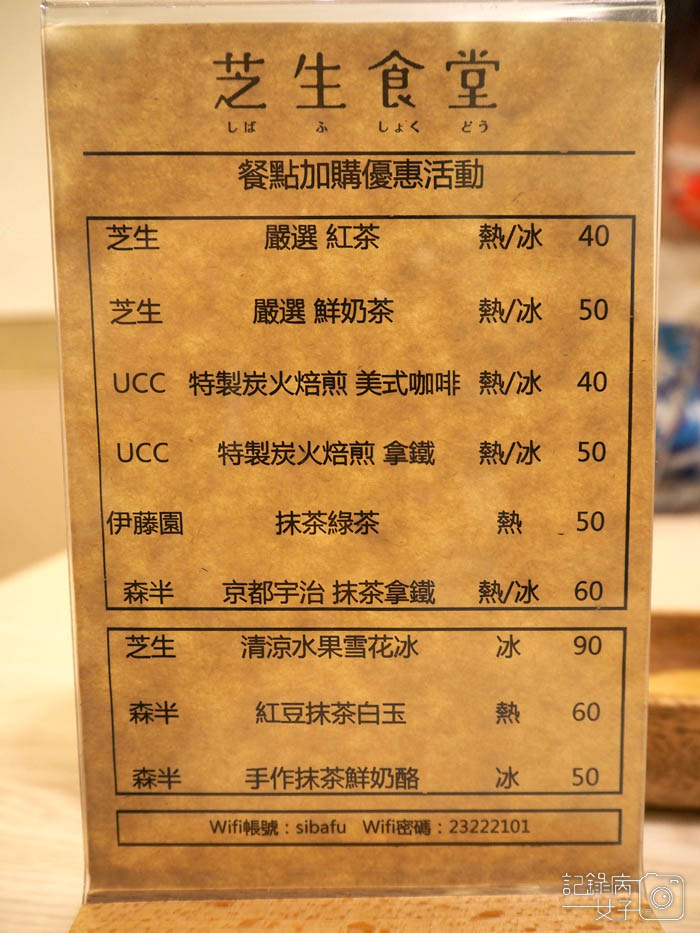 芝生食堂
しば ふ しょく どう
餐點加購優惠活動
芝生 嚴選 紅茶 熱/冰 40
芝生 嚴選 鮮奶茶 熱/冰 50
UCC 特製炭火焙煎 美式咖啡 熱/冰 40
UCC 特製炭火焙煎 拿鐵 熱/冰 50
伊藤園 抹茶綠茶 熱 50
森半 京都宇治 抹茶拿鐵 熱/冰 60
芝生 清涼水果雪花冰 冰 90
森半 紅豆抹茶白玉 熱 60
森半 手作抹茶鮮奶酪 冰 50
Wifi帳號：sibafu Wifi密碼：23222101
記錄病
女子